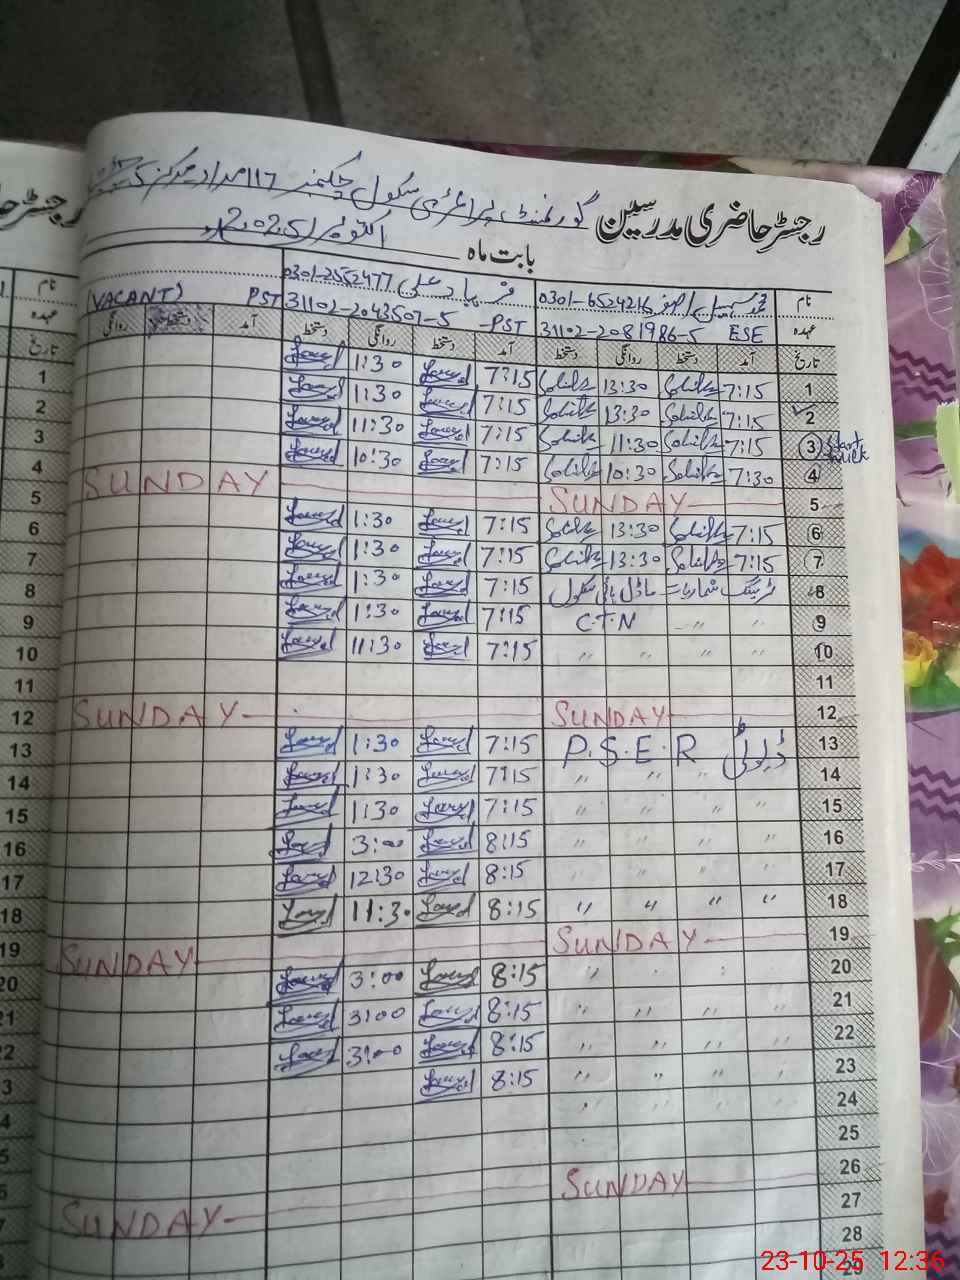 رجسٹر حاضری مدرسین گورنمنٹ پرائمری سکول چکنمبر 116 مراد مرکز
بابت ماہ اکتوبر 2025ء
نام محمد سہیل اصغر 0301-6524216 فرہاد علی 0301-2552477
عہدہ ESE 31102-2081986-5 PST- 31102-2043507-5 PST (VACANT)
تاریخ آمد دستخط روانگی دستخط آمد دستخط روانگی دستخط آمد دستخط روانگی
1 7:15 Sohail 13:30 Sohail 7:15 1:30 1
2 7:15 Sohail 13:30 Sohail 7:15 1:30 2
3 Start milk 7:15 Sohail 11:30 Sohail 7:15 11:30 3
4 7:30 Sohail 10:30 Sohail 7:15 10:30 4
5 SUNDAY SUNDAY 5
6 7:15 Sohail 13:30 Sohail 7:15 1:30 6
7 7:15 Sohail 13:30 Sohail 7:15 1:30 7
8 ٹریننگ ماڈل ہائی سکول 7:15 1:30 8
9 " " C.T.N 7:15 1:30 9
10 " " " " 7:15 11:30 10
11 11
12 SUNDAY SUNDAY 12
13 ڈیوٹی P.S.E.R 7:15 1:30 13
14 " " " " 7:15 1:30 14
15 " " " " 7:15 1:30 15
16 " " " " 8:15 3:00 16
17 " " " " 8:15 12:30 17
18 " " " " 8:15 11:30 18
19 SUNDAY SUNDAY 19
20 " " " " 8:15 3:00 20
21 " " " " 8:15 3:00 21
22 " " " " 8:15 3:00 22
23 " " " " 8:15
24 " " " "
25
26 SUNDAY SUNDAY
27
28
29
23-10-25 12:36